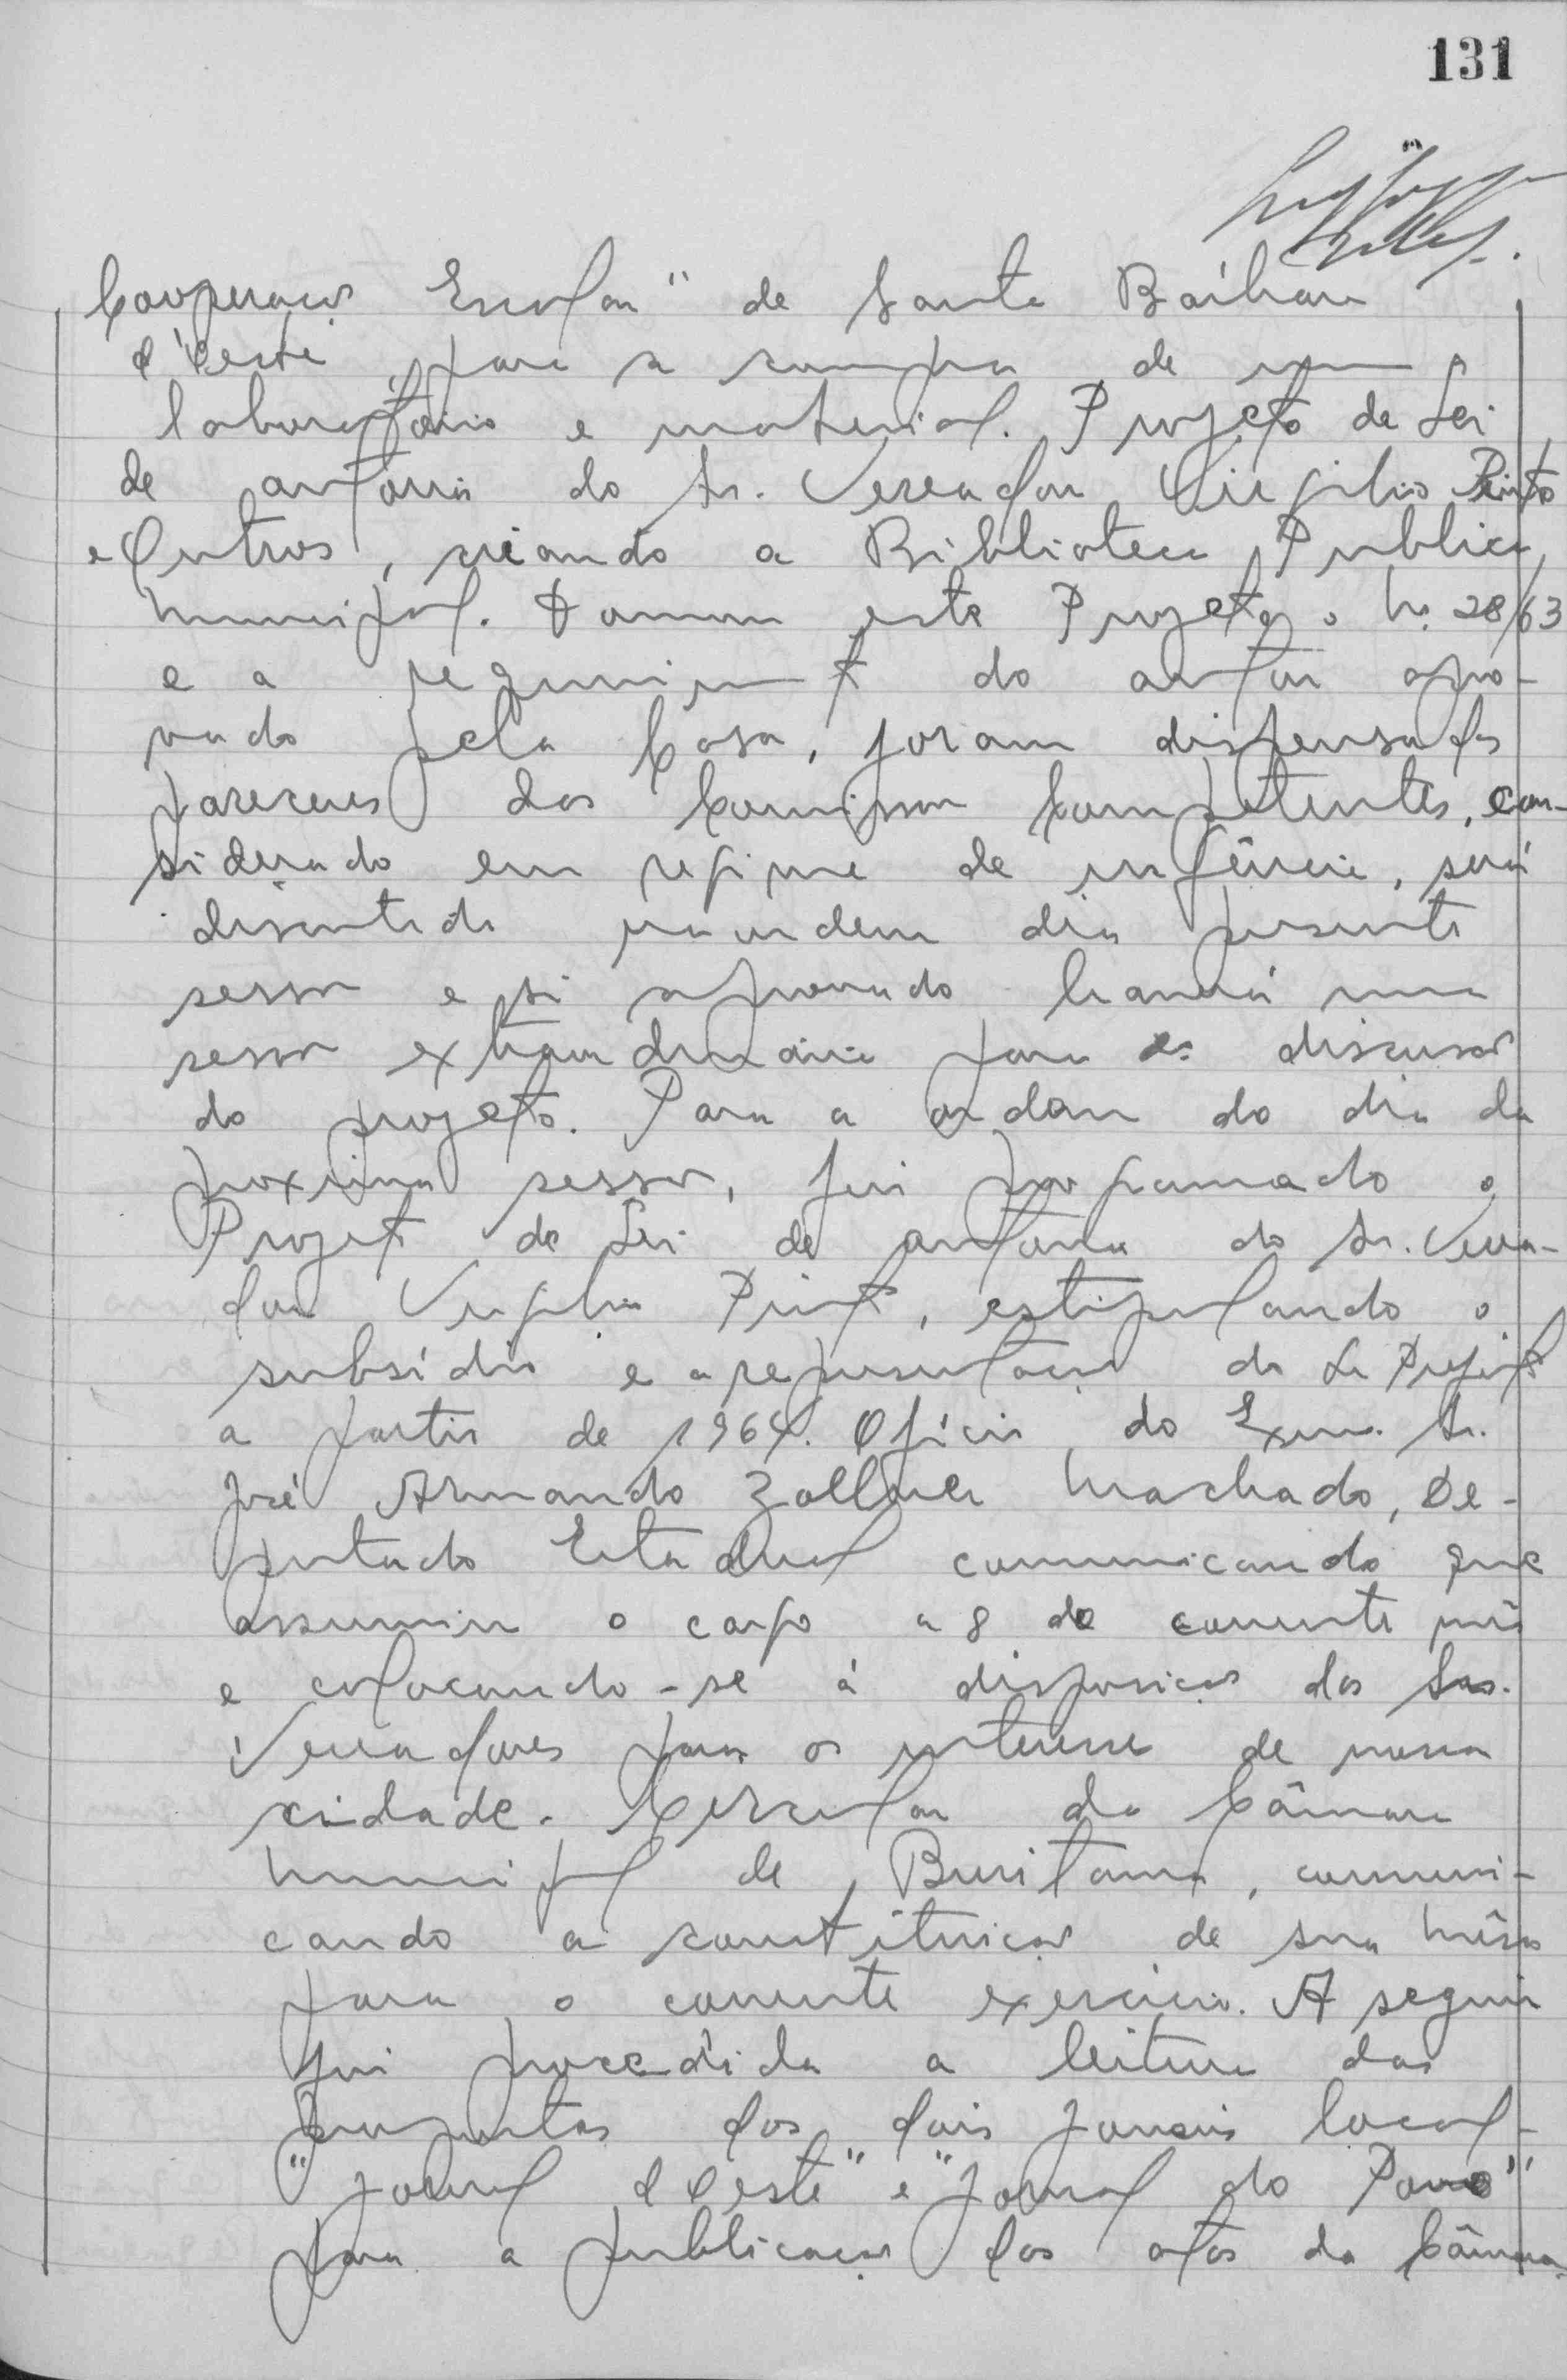 131
Cooperação Escolar" de Santa Bárbara
d'Oeste, para a compra de um
laboratório e material. Projeto de Lei
de autoria do Sr. Vereador Virgilio Pinto
e Outros, criando a Biblioteca Publica
Municipal. Tomou este Projeto o No. 28/63
e a requerimento do autor apro-
vado pela Casa, foram dispensados
pareceres das Comissões Competentes, con-
siderado em regime de urgência, será
discutido na ordem dia presente
sessão e si aprovado haverá uma
sessão extraordinária para a discussão
do projeto. Para a ordem do dia da
proxima sessão, foi programado o
Projeto de Lei de autoria do Sr. Verea-
dor Virgilio Pinto, estipulando o
subsídio e a representação do Sr Prefeito
a partir de 1964. Ofício do Exmo. Sr.
José Armando Zollner Machado, De-
putado Estadual comunicando que
assumiu o cargo a 8 do corrente mês
e colocando-se à disposição dos Srs.
Vereadores para os interesse de nossa
cidade. Circular da Câmara
Municipal de Buritama, comuni-
cando a constituição de sua Mêsa
para o corrente exercício. A seguir
foi procedida a leitura das
propostas dos dois jornais local-
"Jornal d'Oeste" e "Jornal do Povo"
para a publicação dos atos da Câmara.